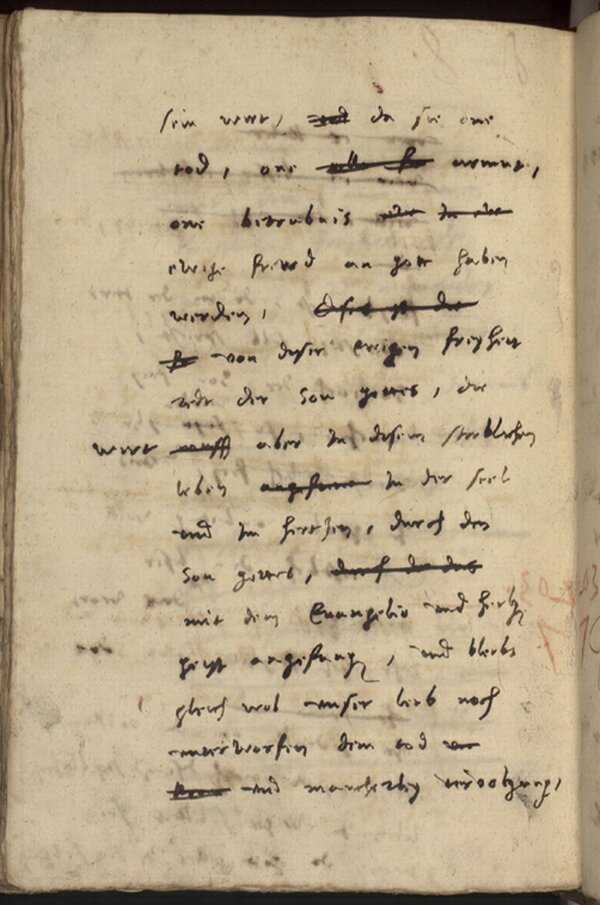 sein wert, und da sie one
tod, one alle armut,
one betrubnis oder
ewige frewd an gott haben
werden,
von diser ewigen freyheit
redt der Son gottes, die
wirt aber in disem sterblichen
leben angefangen in der seel
und im hertzen, durch den
Son gottes, durch
mit dem Euangelio und heilig
geist angefangen, und bleibt
gleich wol unser leib noch
unterworfen dem tod
und mancherley